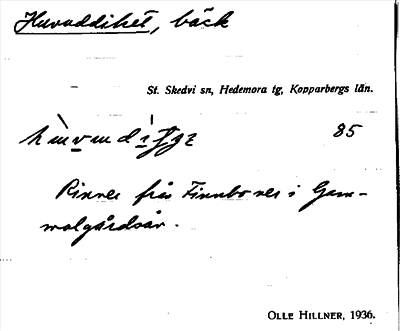 Huvuddiket, bäck
St. Skedvi sn, Hedemora tg, Kopparbergs län.
85
Rinner från Finnbo ner i Gam-
malgårdsån.
OLLE HILLNER, 1936.